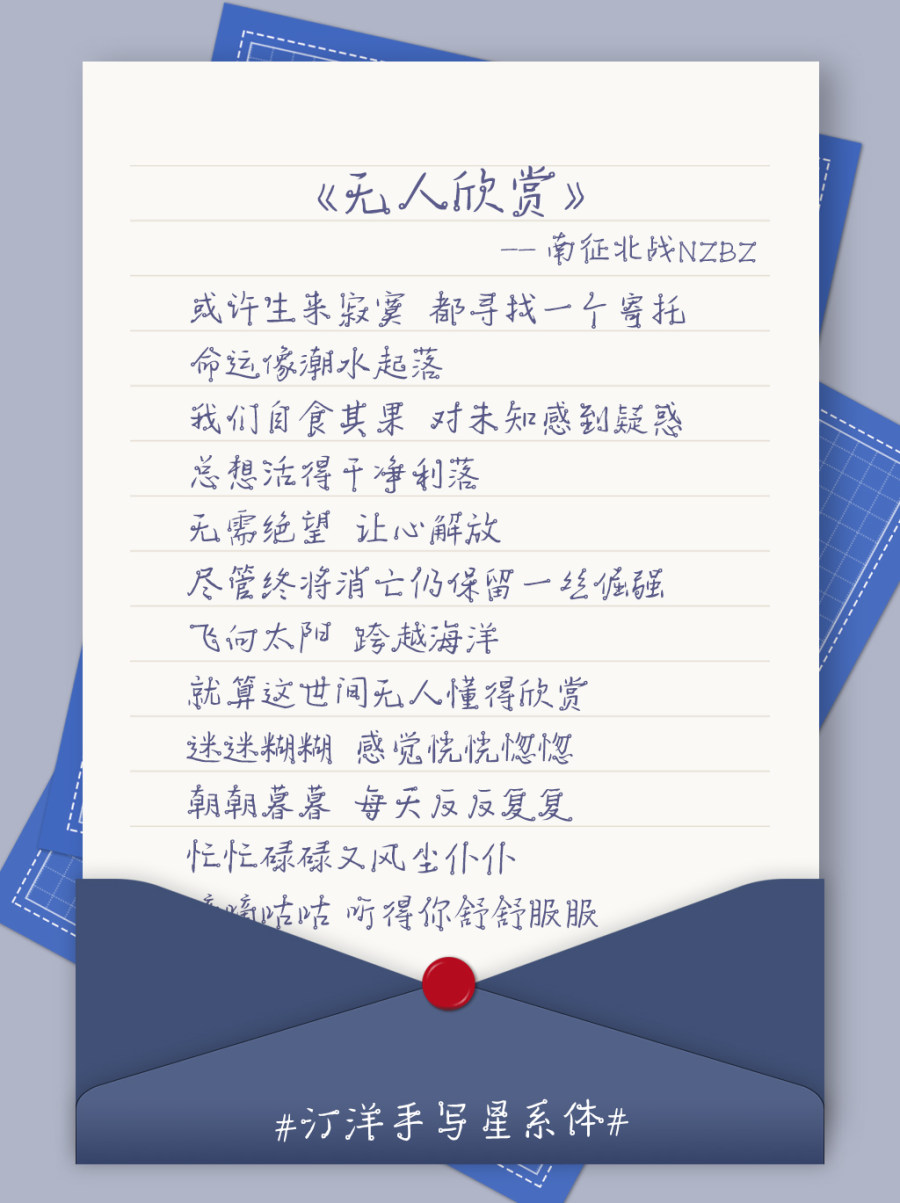 《无人欣赏》
-- 南征北战NZBZ
或许生来寂寞 都寻找一个寄托
命运像潮水起落
我们自食其果 对未知感到疑惑
总想活得干净利落
无需绝望 让心解放
尽管终将消亡仍保留一丝倔强
飞向太阳 跨越海洋
就算这世间无人懂得欣赏
迷迷糊糊 感觉恍恍惚惚
朝朝暮暮 每天反反复复
忙忙碌碌又风尘仆仆
嘀咕咕 听得你舒舒服服
#汀洋手写星系体#